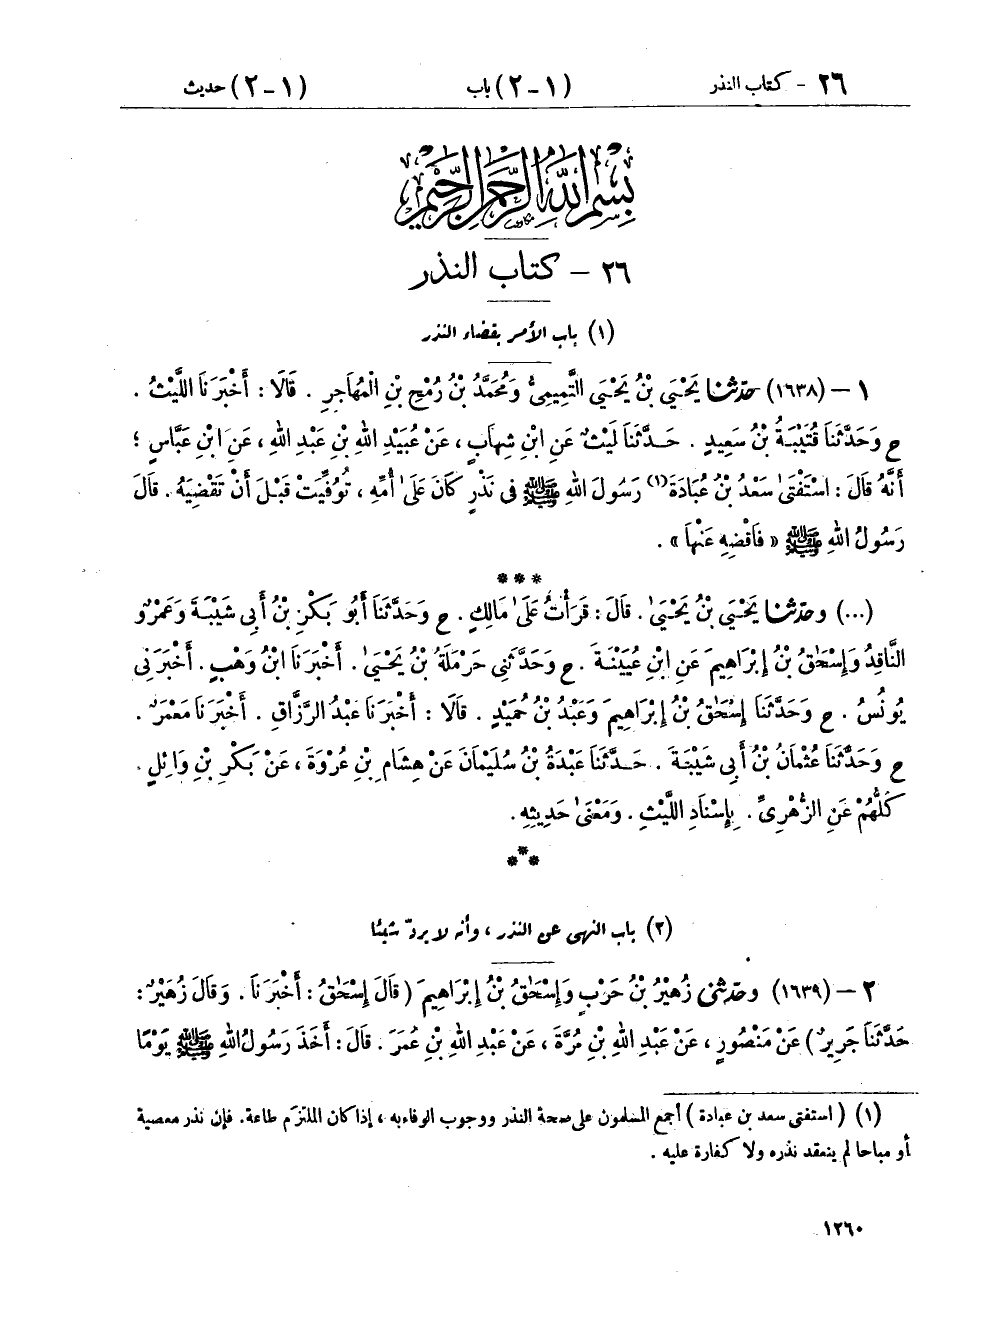 ٢٦ - كتاب النذر (١-٢) باب (١-٢) حديث
بِسْمِ اللَّهِ الرَّحْمَنِ الرَّحِيمِ
٢٦ - كتاب النذر
(١) باب الأمر بقضاء النذر
١ - (١٦٣٨) حدّثنا يَحْيَى بْنُ يَحْيَى التَّمِيمِىُّ وَمُحَمَّدُ بْنُ رُمْحِ بْنِ الْمُهَاجِرِ . قَالَا : أَخْبَرَنَا اللَّيْثُ .
ح وَحَدَّثَنَا قُتَيْبَةُ بْنُ سَعِيدٍ . حَدَّثَنَا لَيْثٌ عَنِ ابْنِ شِهَابٍ ، عَنْ عُبَيْدِ اللهِ بْنِ عَبْدِ اللهِ ، عَنِ ابْنِ عَبَّاسٍ ؛
أَنَّهُ قَالَ : اسْتَفْتَىٰ سَعْدُ بْنُ عُبَادَةَ (١) رَسُولَ اللهِ ﷺ فِى نَذْرٍ كَانَ عَلَىٰ أُمِّهِ ، تُوُفِّيَتْ قَبْلَ أَنْ تَقْضِيَهُ . قَالَ
رَسُولُ اللهِ ﷺ « فَاقْضِهِ عَنْهَا » .
***
(...) وحدّثنا يَحْيَى بْنُ يَحْيَىٰ . قَالَ : قَرَأْتُ عَلَىٰ مَالِكٍ . ح وَحَدَّثَنَا أَبُو بَكْرِ بْنُ أَبِى شَيْبَةَ وَعَمْرٌو
النَّاقِدُ وَإِسْحَٰقُ بْنُ إِبْرَاهِيمَ عَنِ ابْنِ عُيَيْنَةَ . ح وَحَدَّثَنِى حَرْمَلَةُ بْنُ يَحْيَىٰ . أَخْبَرَنَا ابْنُ وَهْبٍ . أَخْبَرَنِى
يُونُسُ . ح وَحَدَّثَنَا إِسْحَٰقُ بْنُ إِبْرَاهِيمَ وَعَبْدُ بْنُ حُمَيْدٍ . قَالَا : أَخْبَرَنَا عَبْدُ الرَّزَّاقِ . أَخْبَرَنَا مَعْمَرٌ .
ح وَحَدَّثَنَا عُثْمَانُ بْنُ أَبِى شَيْبَةَ . حَدَّثَنَا عَبْدَةُ بْنُ سُلَيْمَانَ عَنْ هِشَامِ بْنِ عُرْوَةَ ، عَنْ بَكْرِ بْنِ وَائِلٍ .
كُلُّهُمْ عَنِ الزُّهْرِىِّ . بِإِسْنَادِ اللَّيْثِ . وَمَعْنَىٰ حَدِيثِهِ .
***
(٢) باب النهى عن النذر ، وأنه لا يردّ شيئا
٢ - (١٦٣٩) وحدّثنى زُهَيْرُ بْنُ حَرْبٍ وَإِسْحَٰقُ بْنُ إِبْرَاهِيمَ ( قَالَ إِسْحَٰقُ : أَخْبَرَنَا . وَقَالَ زُهَيْرٌ :
حَدَّثَنَا جَرِيرٌ ) عَنْ مَنْصُورٍ ، عَنْ عَبْدِ اللهِ بْنِ مُرَّةَ ، عَنْ عَبْدِ اللهِ بْنِ عُمَرَ . قَالَ : أَخَذَ رَسُولُ اللهِ ﷺ يَوْمًا
(١) ( استفتى سعد بن عبادة ) أجمع المسلمون على صحة النذر ووجوب الوفاء به ، إذا كان الملتزم طاعة . فإن نذر معصية
أو مباحا لم ينعقد نذره ولا كفارة عليه .
١٢٦٠